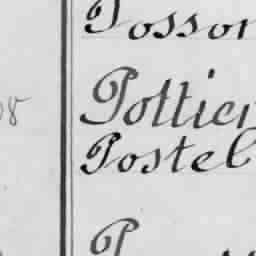 Posson
Pottier
Postel